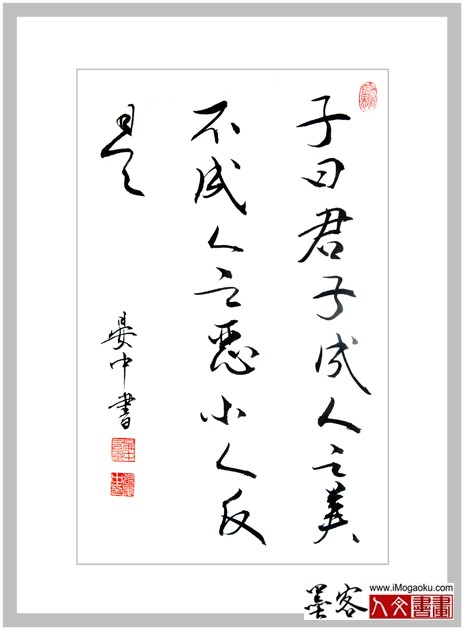 子曰君子成人之美
不成人之恶小人反
是
晏中書
墨客
www.iMogaoku.com
人文書畫